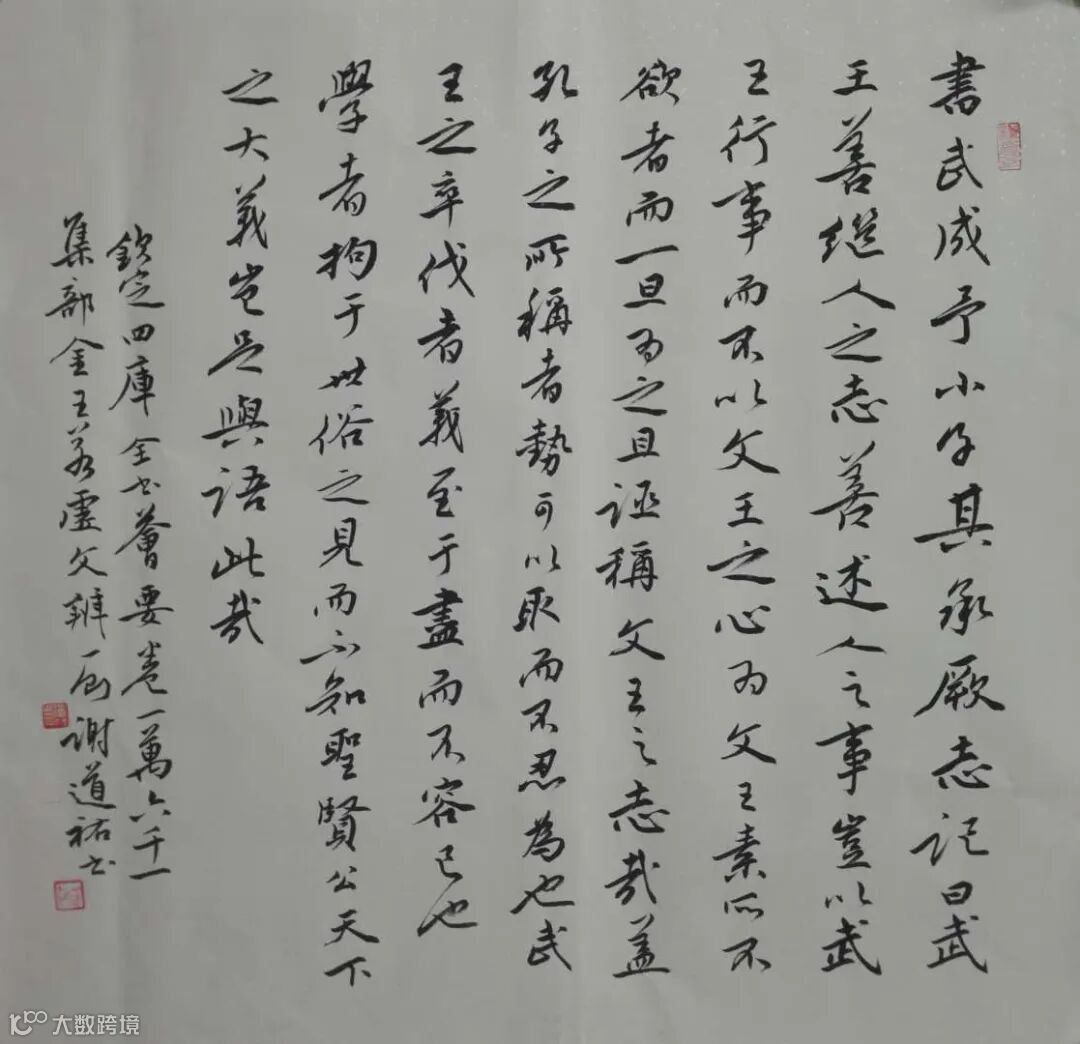 書武成予小子其承厥志記曰武
王善繼人之志善述人之事豈以武
王行事而不以文王之心为文王素所不
欲者而一旦为之且诬稱文王之志哉盖
孔子之所稱者勢可以取而不忍為也武
王之卒伐者義至于盡而不容已也
學者拘于世俗之見而不知聖賢公天下
之大義岂足與語此哉
欽定四庫全书薈要卷一萬六千一
集部金王若虚文辨一 谢道祐书
大数跨境